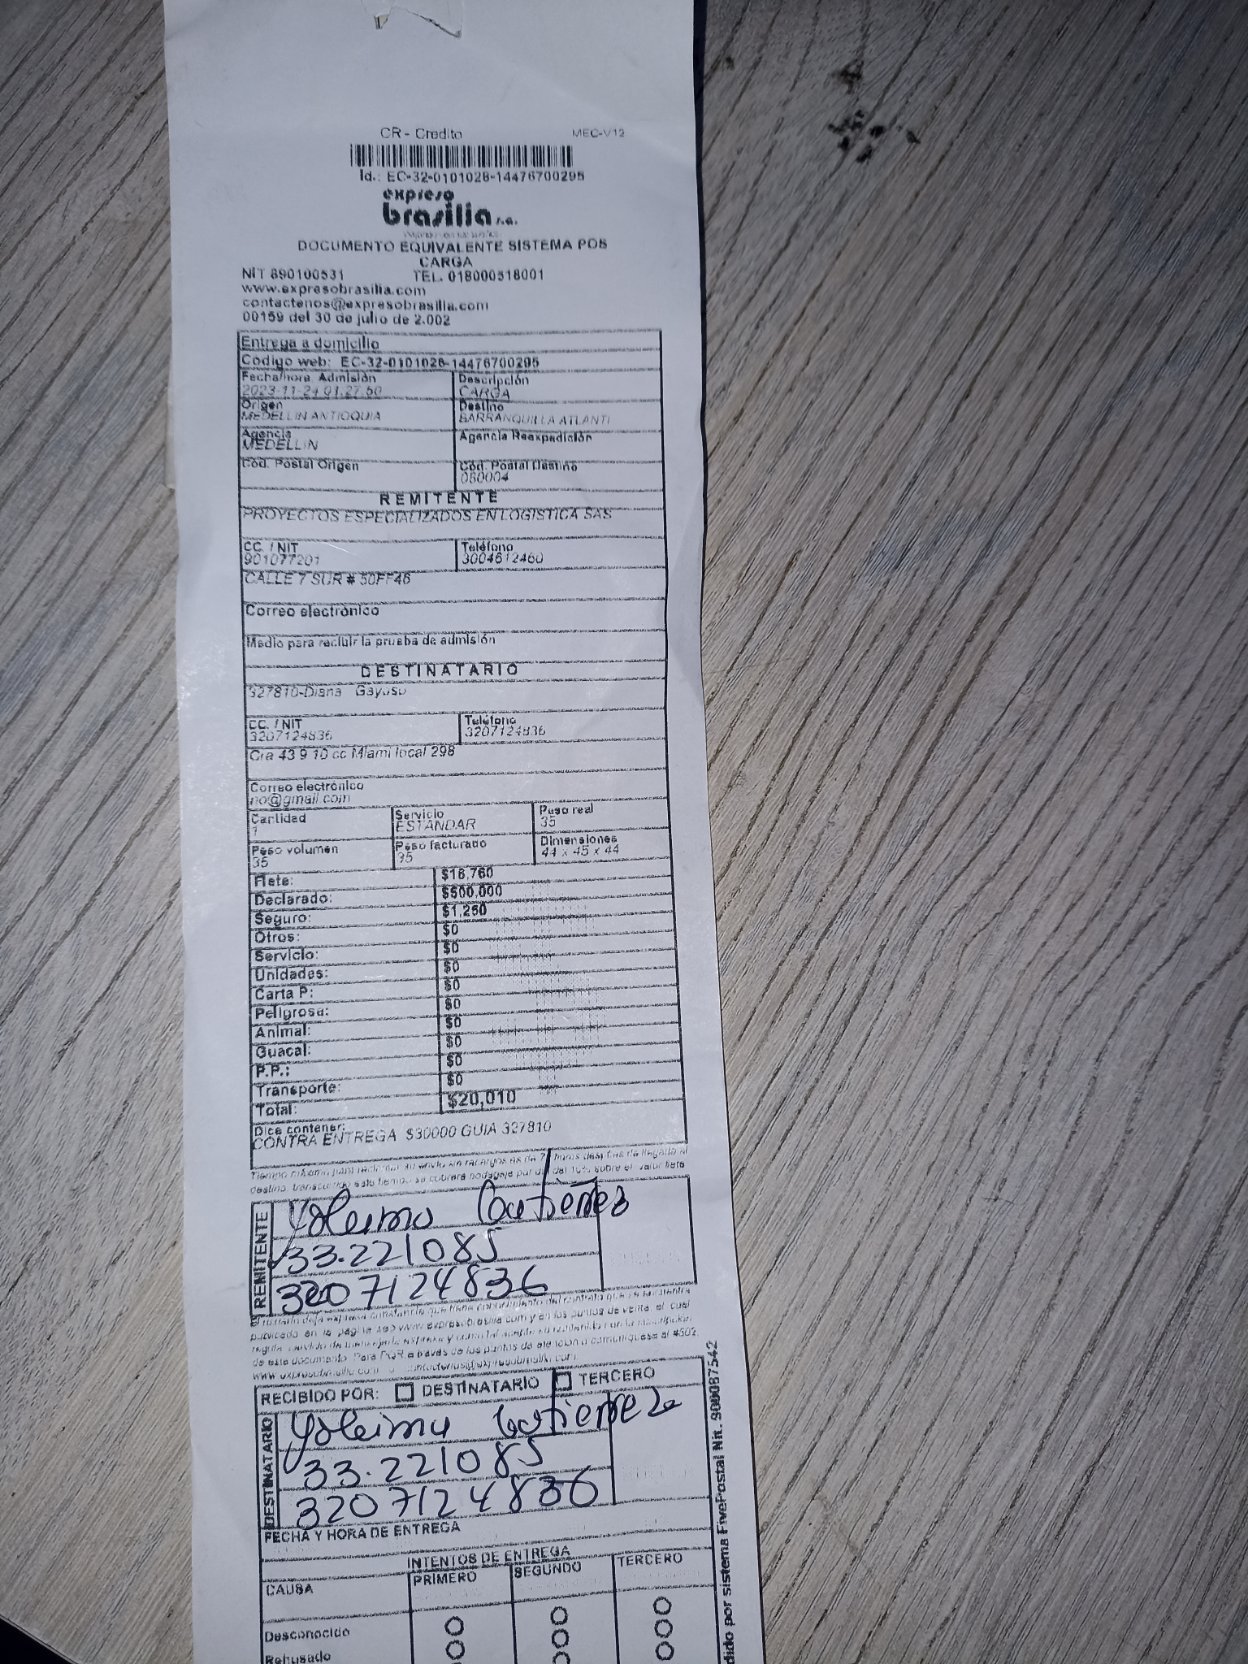 CR - Credito MEC-V12
Id.: EC-32-0101028-14476700295
expreso
brasilia s.a.
DOCUMENTO EQUIVALENTE SISTEMA POS
CARGA
NIT 890100531 TEL. 018000518001
www.expresobrasilia.com
contactenos@expresobrasilia.com
00159 del 30 de julio de 2.002
Entrega a domicilio
Código web: EC-32-0101028-14476700295
Fecha/hora Admisión Descripción
2023-11-24 01:27:50 CARGA
Origen Destino
MEDELLIN ANTIOQUIA BARRANQUILLA ATLANTI
Agencia Agencia Reexpedición
MEDELLIN
Cód. Postal Origen Cód. Postal Destino
080004
REMITENTE
PROYECTOS ESPECIALIZADOS EN LOGISTICA SAS
CC. / NIT Teléfono
901077201 3004612460
CALLE 7 SUR # 50FF46
Correo electrónico
Medio para recibir la prueba de admisión
DESTINATARIO
327810-Diana Gayoso
CC. / NIT Teléfono
3207124836 3207124836
Cra 43 9 10 cc Miami local 298
Correo electrónico
no@gmail.com
Cantidad Servicio Peso real
1 ESTANDAR 35
Peso volumen Peso facturado Dimensiones
35 35 44 x 45 x 44
Flete: $18,760
Declarado: $500,000
Seguro: $1,250
Otros: $0
Servicio: $0
Unidades: $0
Carta P: $0
Peligrosa: $0
Animal: $0
Guacal: $0
P.P.: $0
Transporte: $0
Total: $20,010
Dice contener:
CONTRA ENTREGA $30000 GUIA 327810
REMITENTE
Yoleima Gutierrez
33.221085
3207124836
RECIBIDO POR: DESTINATARIO TERCERO
DESTINATARIO
Yoleima Gutierrez
33.221085
3207124836
FECHA Y HORA DE ENTREGA
INTENTOS DE ENTREGA
CAUSA PRIMERO SEGUNDO TERCERO
Desconocido
Rehusado
dido por sistema FivePostal Nit. 900087542